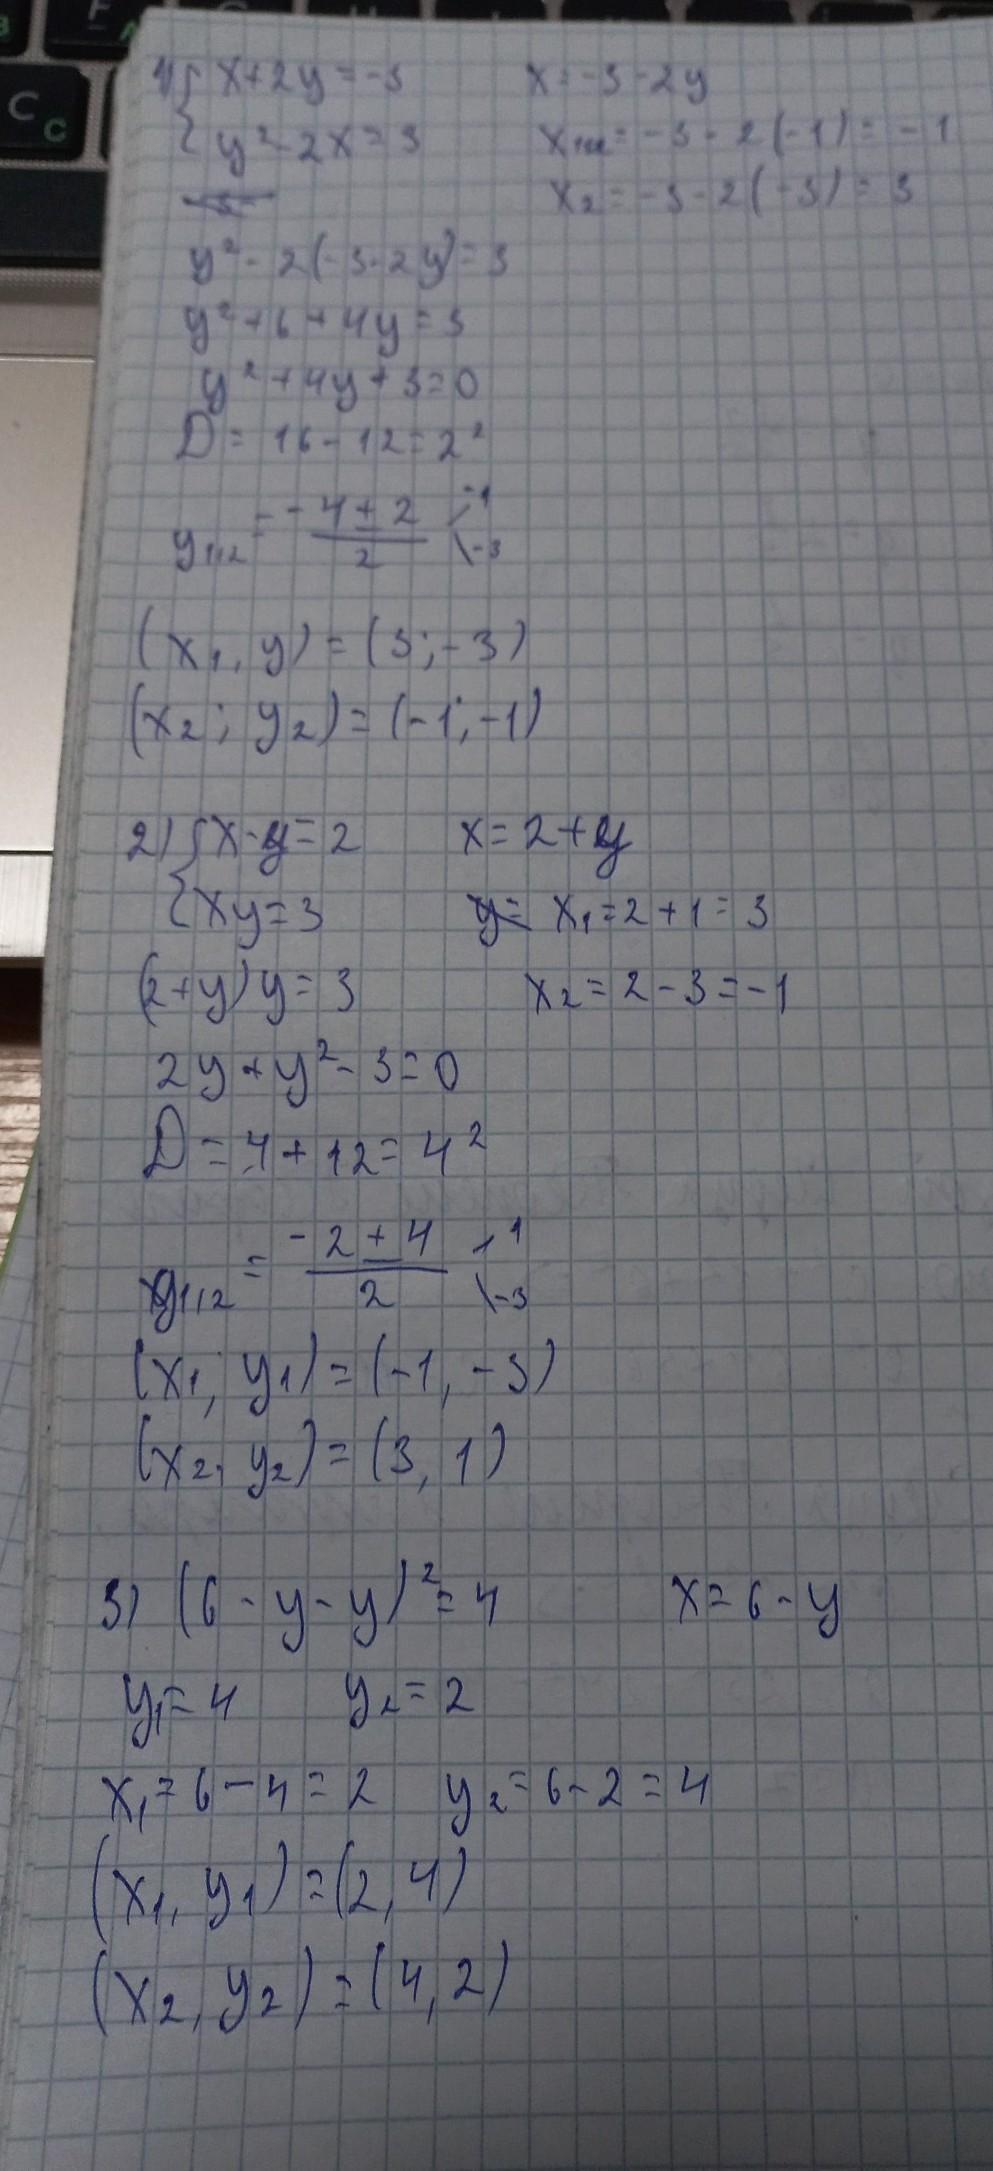 1) { x+2y=-3      x=-3-2y
y²-2x=3      x₁ = -3-2(-1)=-1
x₂=-3-2(-3)=3
y²-2(-3-2y)=3
y²+6+4y=3
y²+4y+3=0
D=16-12=2²
y₁,₂ = (-4±2)/2  -1  -3
(x₁, y)=(3;-3)
(x₂; y₂)=(-1;-1)
2) { x-y=2      x=2+y
xy=3      y= x₁=2+1=3
(2+y)y=3      x₂=2-3=-1
2y+y²-3=0
D=4+12=4²
y₁,₂ = (-2±4)/2  1  -3
(x₁; y₁)=(-1, -3)
(x₂, y₂)=(3, 1)
3) (6-y-y)²=4      x=6-y
y₁=4      y₂=2
x₁=6-4=2      y₂=6-2=4
(x₁, y₁)=(2,4)
(x₂, y₂)=(4,2)